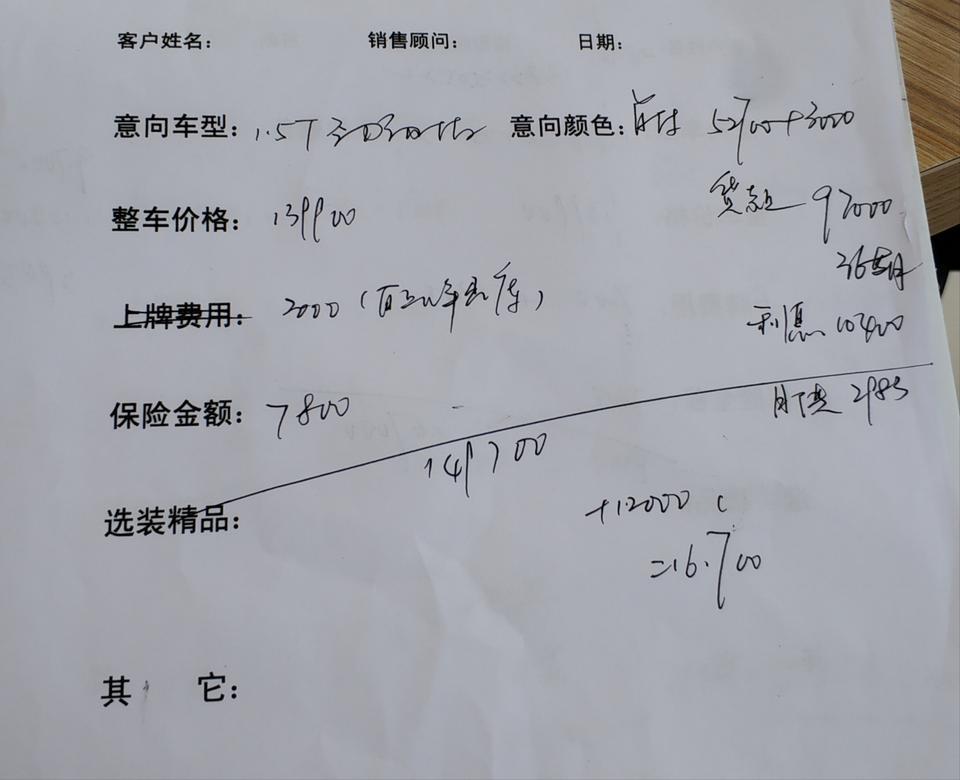 客户姓名： 销售顾问： 日期：
意向车型：1.5T 意向颜色： 52700+3000
整车价格：139900
贷款 97000
36期
上牌费用：2000（
利息 10400
保险金额：7800
月供 2983
149700
选装精品：
+12000
=16.700
其 它：